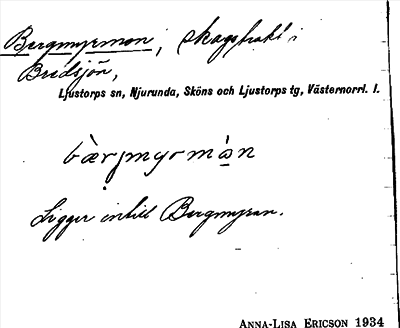 Bergmyrmon, skogstrakt i
Bredsjön,
Ljustorps sn, Njurunda, Sköns och Ljustorps tg, Västernorrl. l.
Ligger intill Bergmyran.
ANNA-LISA ERICSON 1934